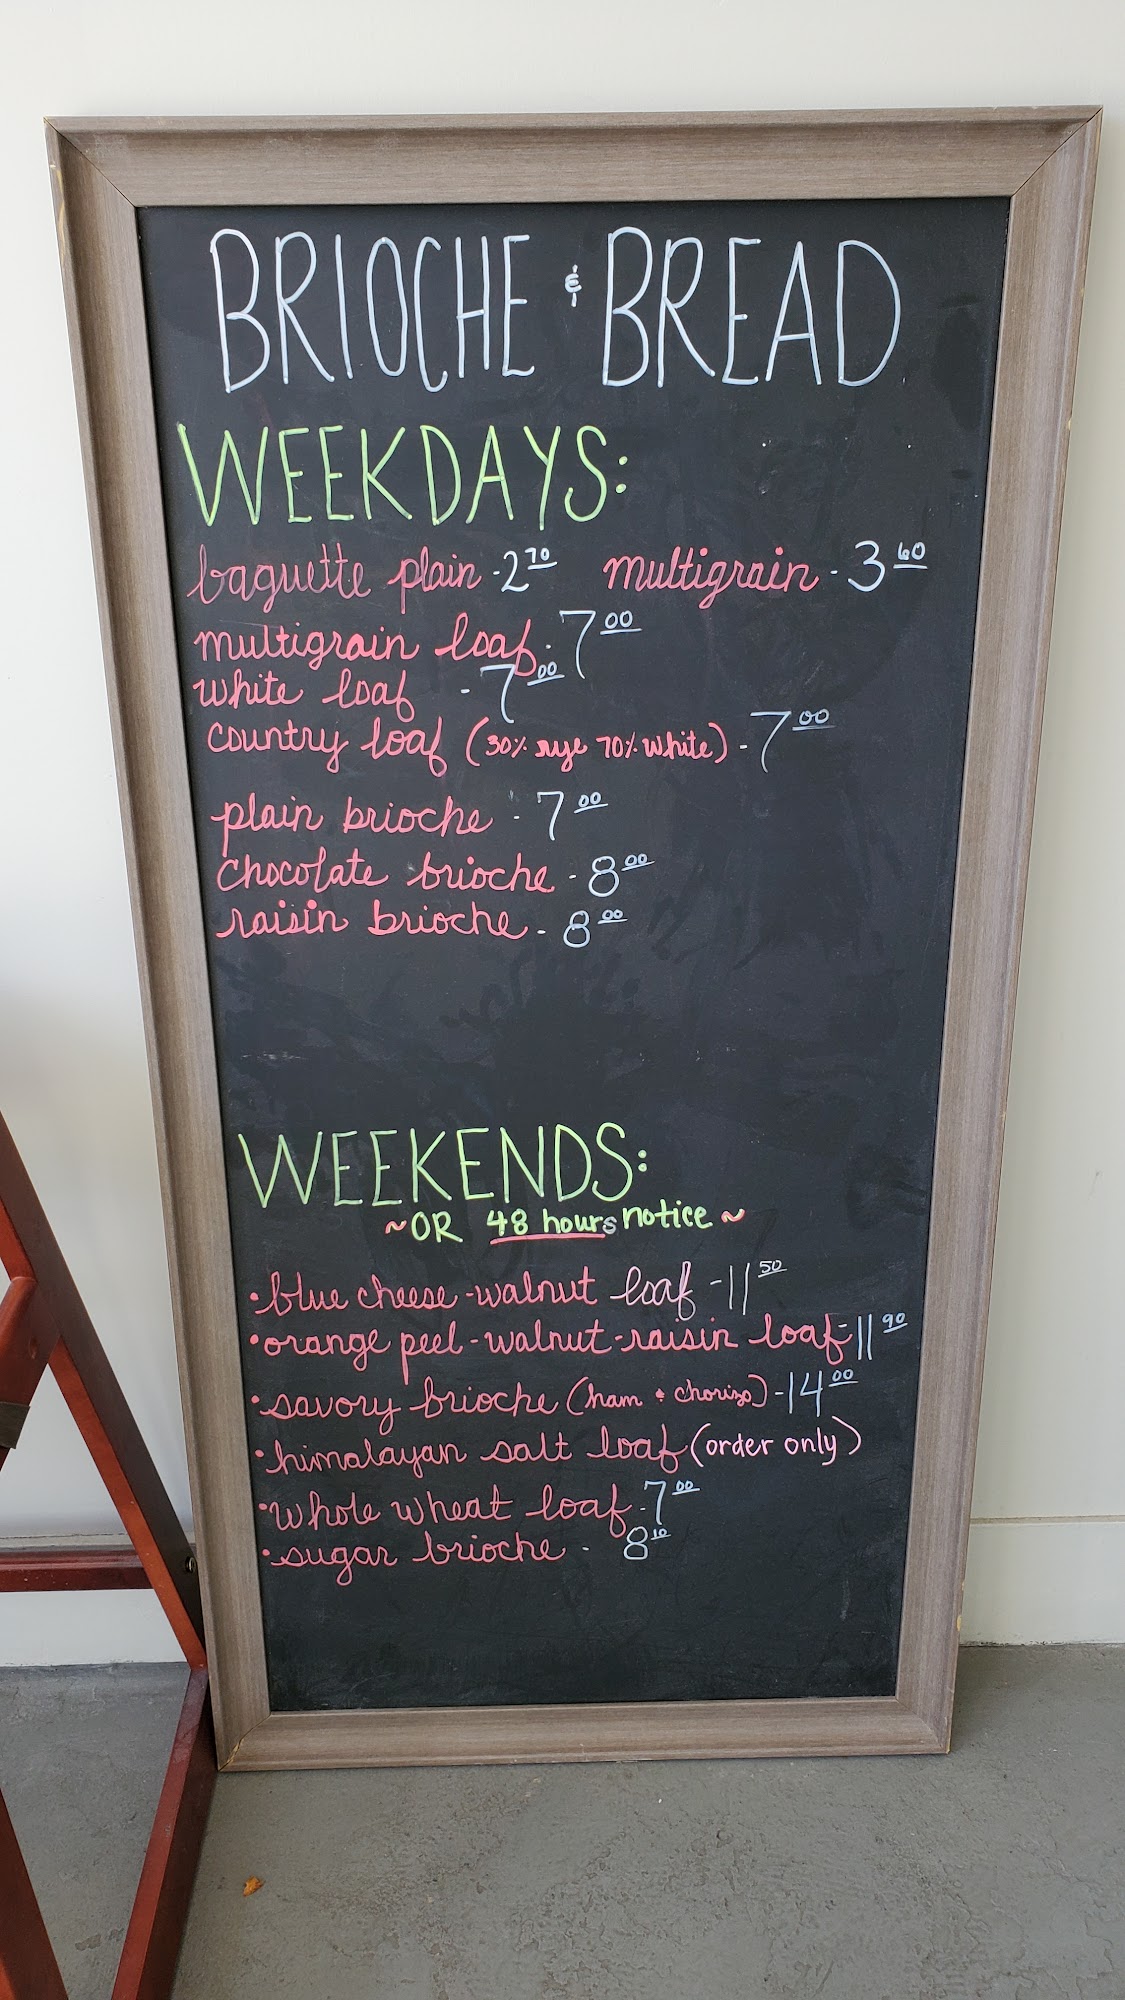 BRIOCHE & BREAD
WEEKDAYS:
baguette plain - 2 70 multigrain - 3 60
multigrain loaf - 7 00
white loaf - 7 00
country loaf (30% rye 70% white) - 7 00
plain brioche - 7 00
chocolate brioche - 8 00
raisin brioche - 8 00
WEEKENDS:
~OR 48 hours notice~
•blue cheese-walnut loaf - 11 50
•orange peel-walnut-raisin loaf - 11 90
•savory brioche (ham & chorizo) - 14 00
•himalayan salt loaf (order only)
•whole wheat loaf - 7 00
•sugar brioche - 8 10